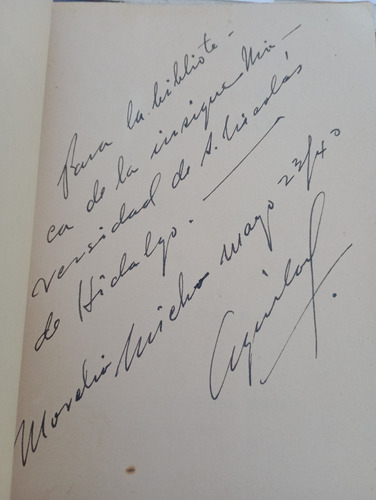 Para la bibliote-
ca de la insigne Uni-
versidad de S. Nicolás
de Hidalgo.
Morelia Micho mayo 23/40
Aguilar